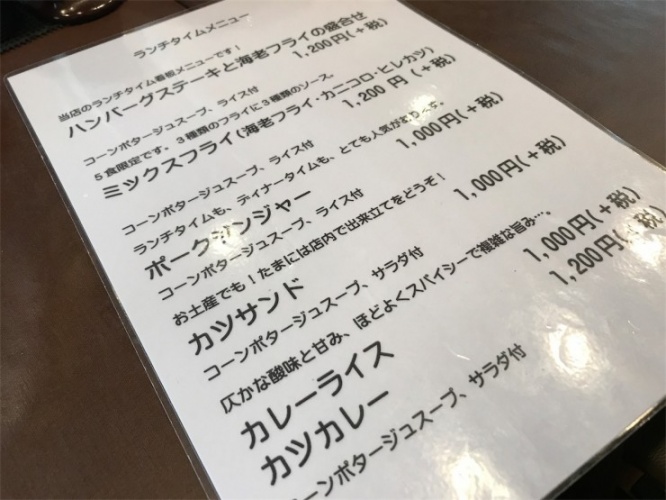 ランチタイムメニュー
当店のランチタイム看板メニューです！
ハンバーグステーキと海老フライの盛合せ
1,200円(+税)
コーンポタージュスープ、ライス付
5食限定です。3種類のフライに3種類のソース。
ミックスフライ(海老フライ・カニコロ・ヒレカツ)
1,200 円 (+税)
コーンポタージュスープ、ライス付
ランチタイムも、ディナータイムも、とても人気があります。
ポークジンジャー 1,000円(+税)
コーンポタージュスープ、ライス付
お土産でも！たまには店内で出来立てをどうぞ！
カツサンド 1,000円(+税)
コーンポタージュスープ、サラダ付
仄かな酸味と甘み、ほどよくスパイシーで複雑な旨み…。
カレーライス 1,000円(+税)
カツカレー 1,200円(+税)
コーンポタージュスープ、サラダ付